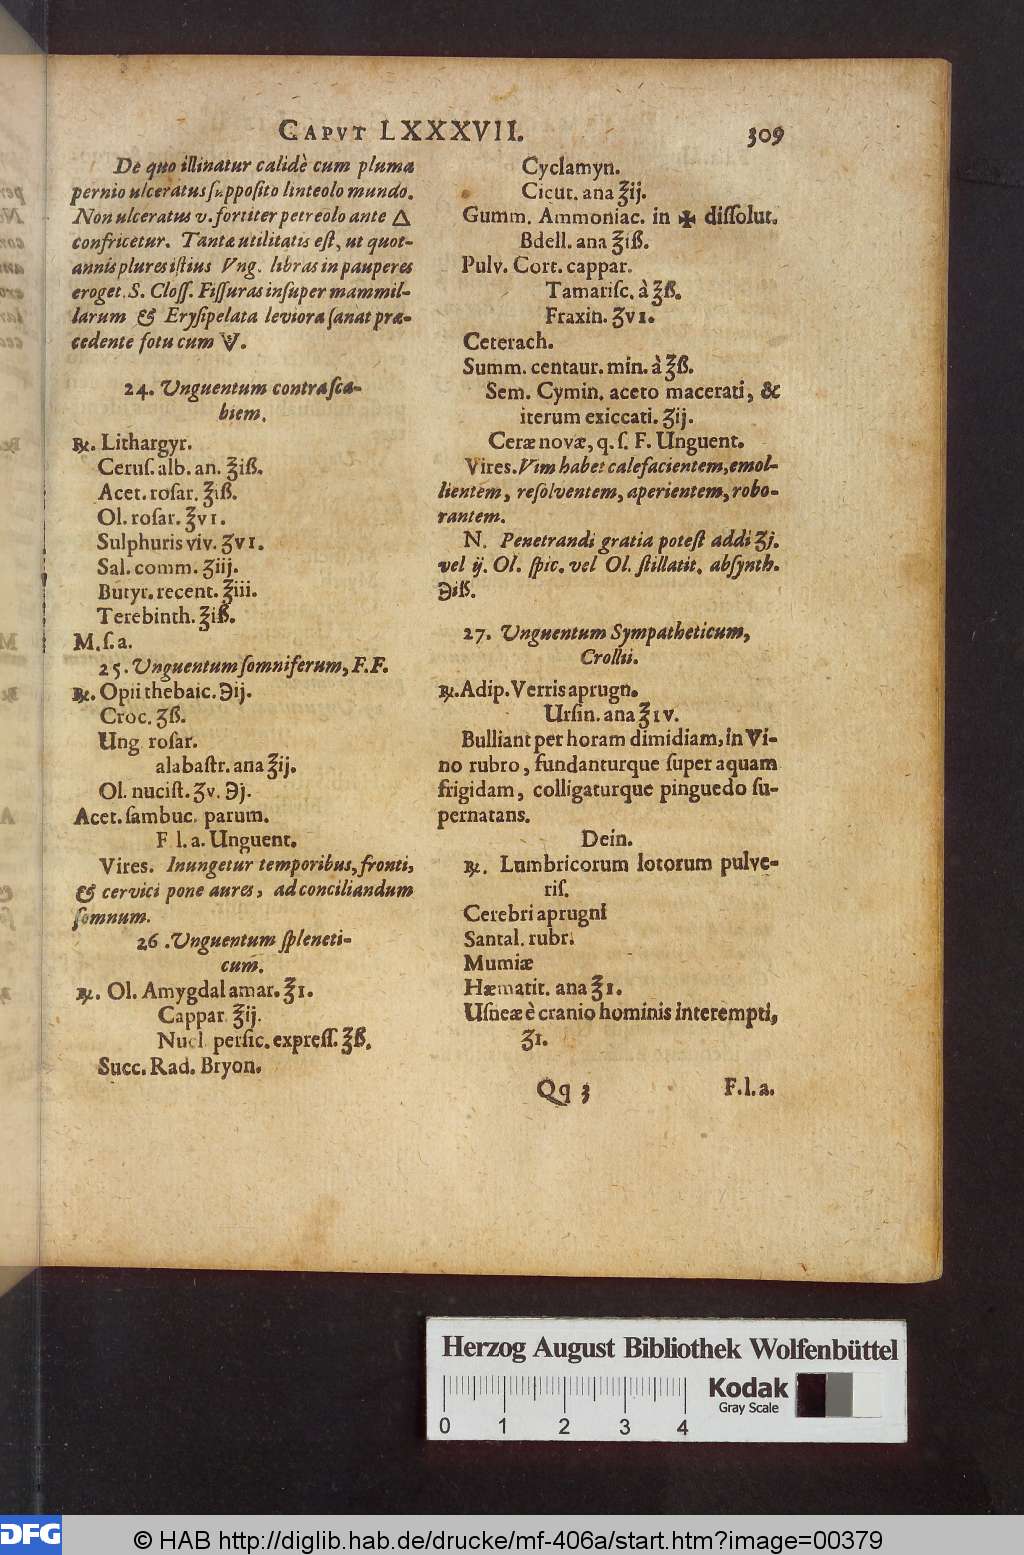 CAPVT LXXXVII. 309
De quo illinatur calidè cum pluma
pernio ulceratus supposito linteolo mundo.
Non ulceratus v. fortiter petreolo ante △
confricetur. Tantæ utilitatis est, ut quot-
annis plures istius Vng. libras in pauperes
eroget. S. Closs. Fissuras insuper mammil-
larum & Erysipelata leviora sanat præ-
cedente fotu cum
24. Unguentum contra sca-
biem.
℞. Lithargyr.
Cerus. alb. an. ℥iß.
Acet. rosar. ℥iß.
Ol. rosar. ℥vı.
Sulphuris viv. ʒvı.
Sal. comm. ʒiij.
Butyr. recent. ℥iii.
Terebinth. ℥iß.
M. s. a.
25. Unguentum somniferum, F. F.
℞. Opii thebaic. ℈ij.
Croc. ʒß.
Ung rosar.
alabastr. ana ℥ij.
Ol. nucist. ʒv. ℈j.
Acet. sambuc. parum.
F l. a. Unguent.
Vires. Inungetur temporibus, fronti,
& cervici pone aures, ad conciliandum
somnum.
26. Unguentum spleneti-
cum.
℞. Ol. Amygdal amar. ℥ı.
Cappar ℥ij.
Nucl. persic. express. ℥ß.
Succ. Rad. Bryon.
Cyclamyn.
Cicut. ana ℥ij.
Gumm. Ammoniac. in ✠ dissolut.
Bdell. ana ℥iß.
Pulv. Cort. cappar.
Tamarisc. à ℥ß.
Fraxin. ʒvı.
Ceterach.
Summ. centaur. min. à ℥ß.
Sem. Cymin. aceto macerati, &
iterum exiccati. ʒij.
Ceræ novæ, q. s. F. Unguent.
Vires. Vim habet calefacientem, emol-
lientem, resolventem, aperientem, robo-
rantem.
N. Penetrandi gratia potest addi ʒj.
vel ij. Ol. spic. vel Ol. stillatit. absynth.
℈iß.
27. Unguentum Sympatheticum,
Crollii.
℞. Adip. Verris aprugn.
Ursin. ana ℥ıv.
Bulliant per horam dimidiam, in Vi-
no rubro, fundanturque super aquam
frigidam, colligaturque pinguedo su-
pernatans.
Dein.
℞. Lumbricorum lotorum pulve-
ris.
Cerebri aprugni
Santal. rubr.
Mumiæ
Hæmatit. ana ℥ı.
Usneæ è cranio hominis interempti,
ʒı.
Qq 3 F. l. a.
Herzog August Bibliothek Wolfenbüttel
Kodak
Gray Scale
0 1 2 3 4
DFG
© HAB http://diglib.hab.de/drucke/mf-406a/start.htm?image=00379